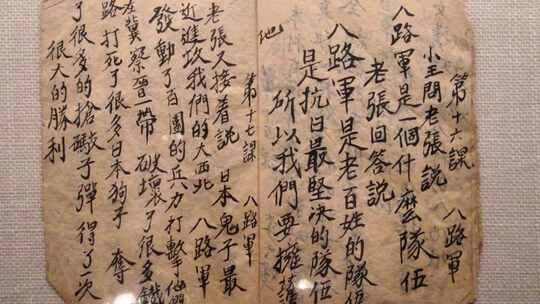 第十六課 八路軍
小王問老張說
八路軍是一個什麼隊伍
老張回答說
八路軍是老百姓的隊伍
是抗日最堅决的隊伍
所以我們要擁護
他
第十七課 八路軍
老张又接着說 日本鬼子最
近進攻我們的大西北 八路軍
發動了百團的兵力打擊他們
在冀察晋一帶 破壞了很多鐵
路打死了很多日本狗子 奪
了很多的搶敵子彈得了一次
很大的勝利